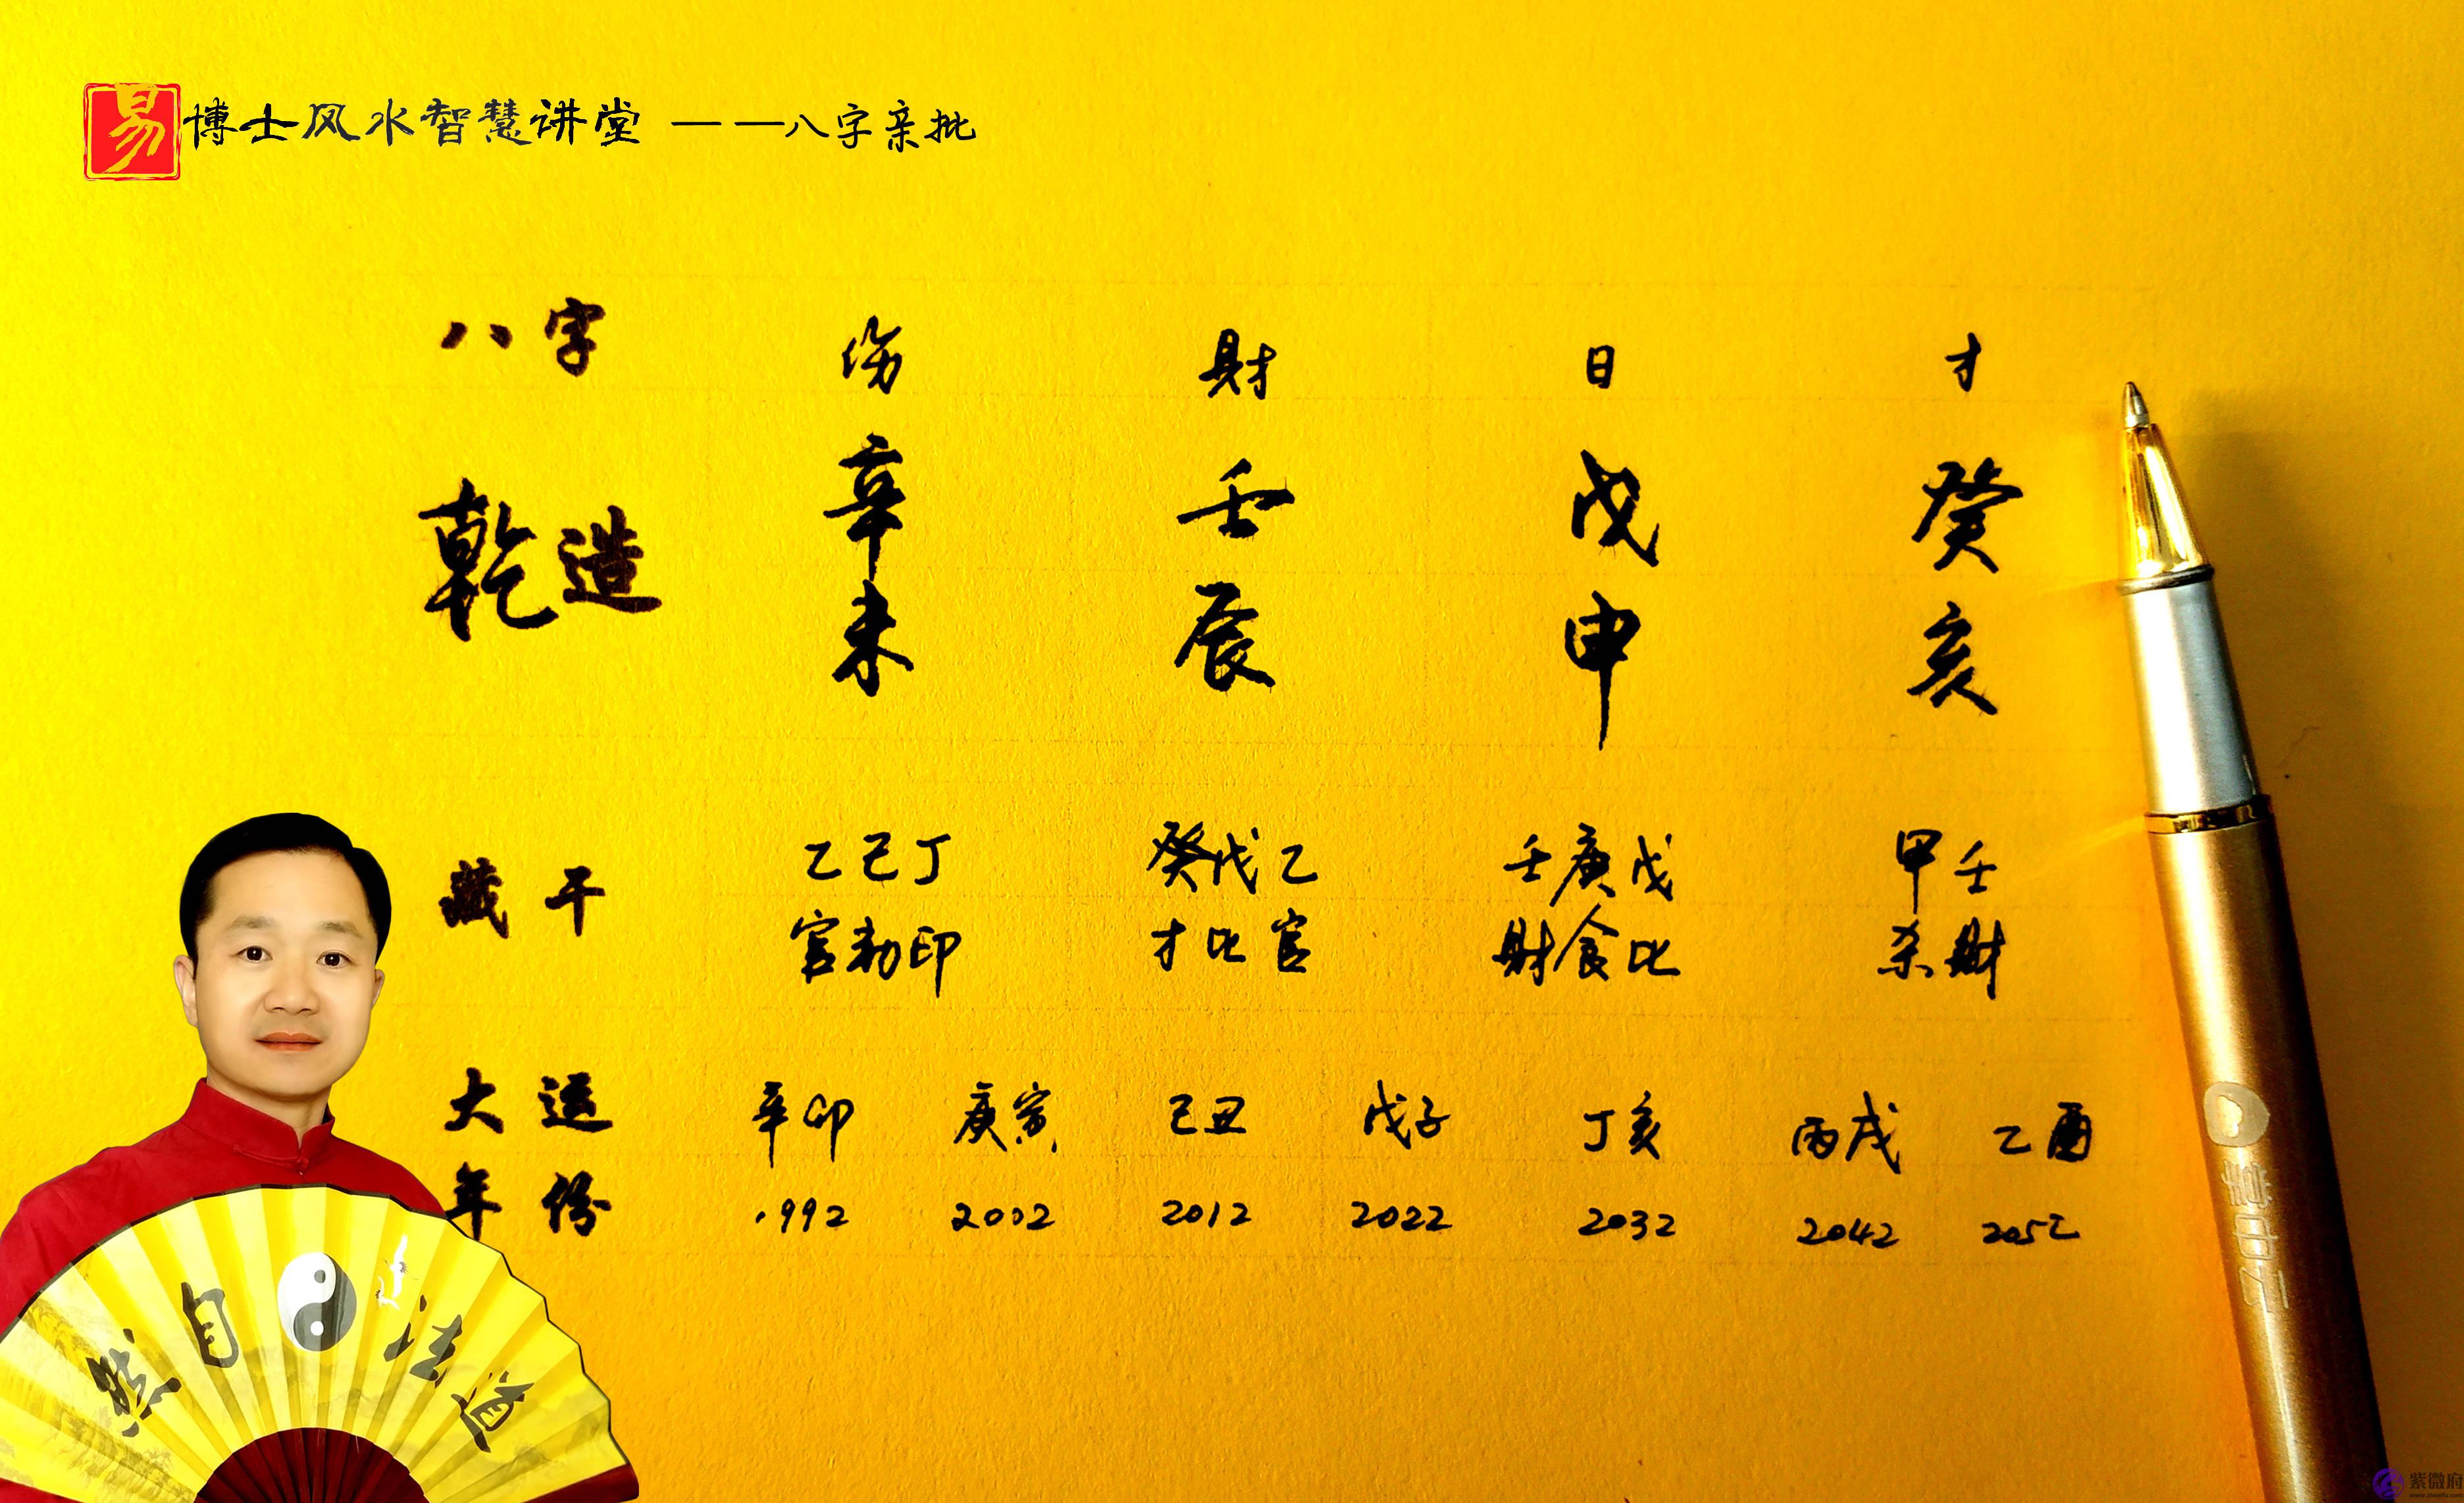 易博士风水智慧讲堂 ——八字亲批
八字 伤 财 日 才
乾造 辛 壬 戊 癸
未 辰 申 亥
藏干 乙己丁 癸戊乙 壬庚戊 甲壬
官劫印 才比官 财食比 杀财
大运 辛卯 庚寅 己丑 戊子 丁亥 丙戌 乙酉
年份 1992 2002 2012 2022 2032 2042 2052
然自法道
紫微府